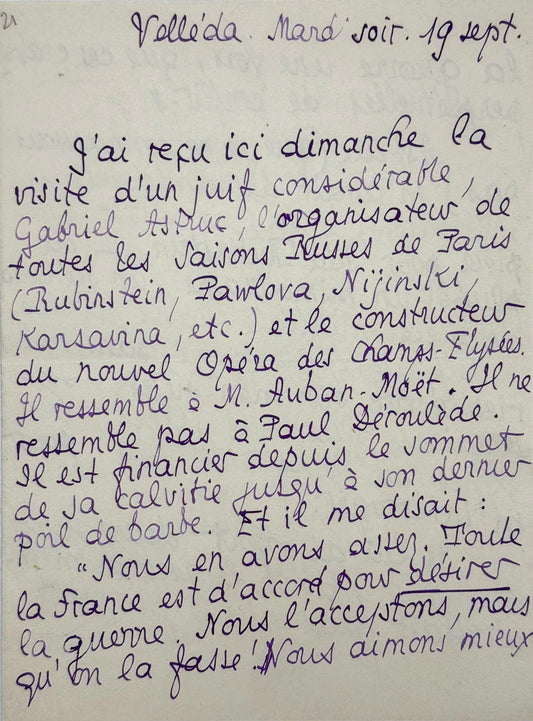 21
Velléda. Mardi soir. 19 sept.
J'ai reçu ici dimanche la
visite d'un juif considérable,
Gabriel Astruc, l'organisateur de
toutes les saisons Russes de Paris
(Rubinstein, Pawlova, Nijinski,
Karsavina, etc.) et le constructeur
du nouvel Opéra des Champs-Elysées.
Il ressemble à M. Auban-Moët. Il ne
ressemble pas à Paul Déroulède.
Il est financier depuis le sommet
de sa calvitie jusqu'à son dernier
poil de barbe. Et il me disait :
"Nous en avons assez. Toute
la France est d'accord pour désirer
la guerre. Nous l'acceptons, mais
qu'on la fasse! Nous aimons mieux